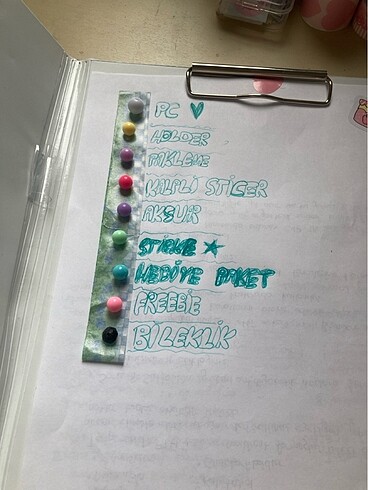 PC ♥
HOLDER
PAKLEME
KALPLİ STİCER
AKSUAR
STİRKE ★
HEDİYE PAKET
FREEBİE
BİLEKLİK